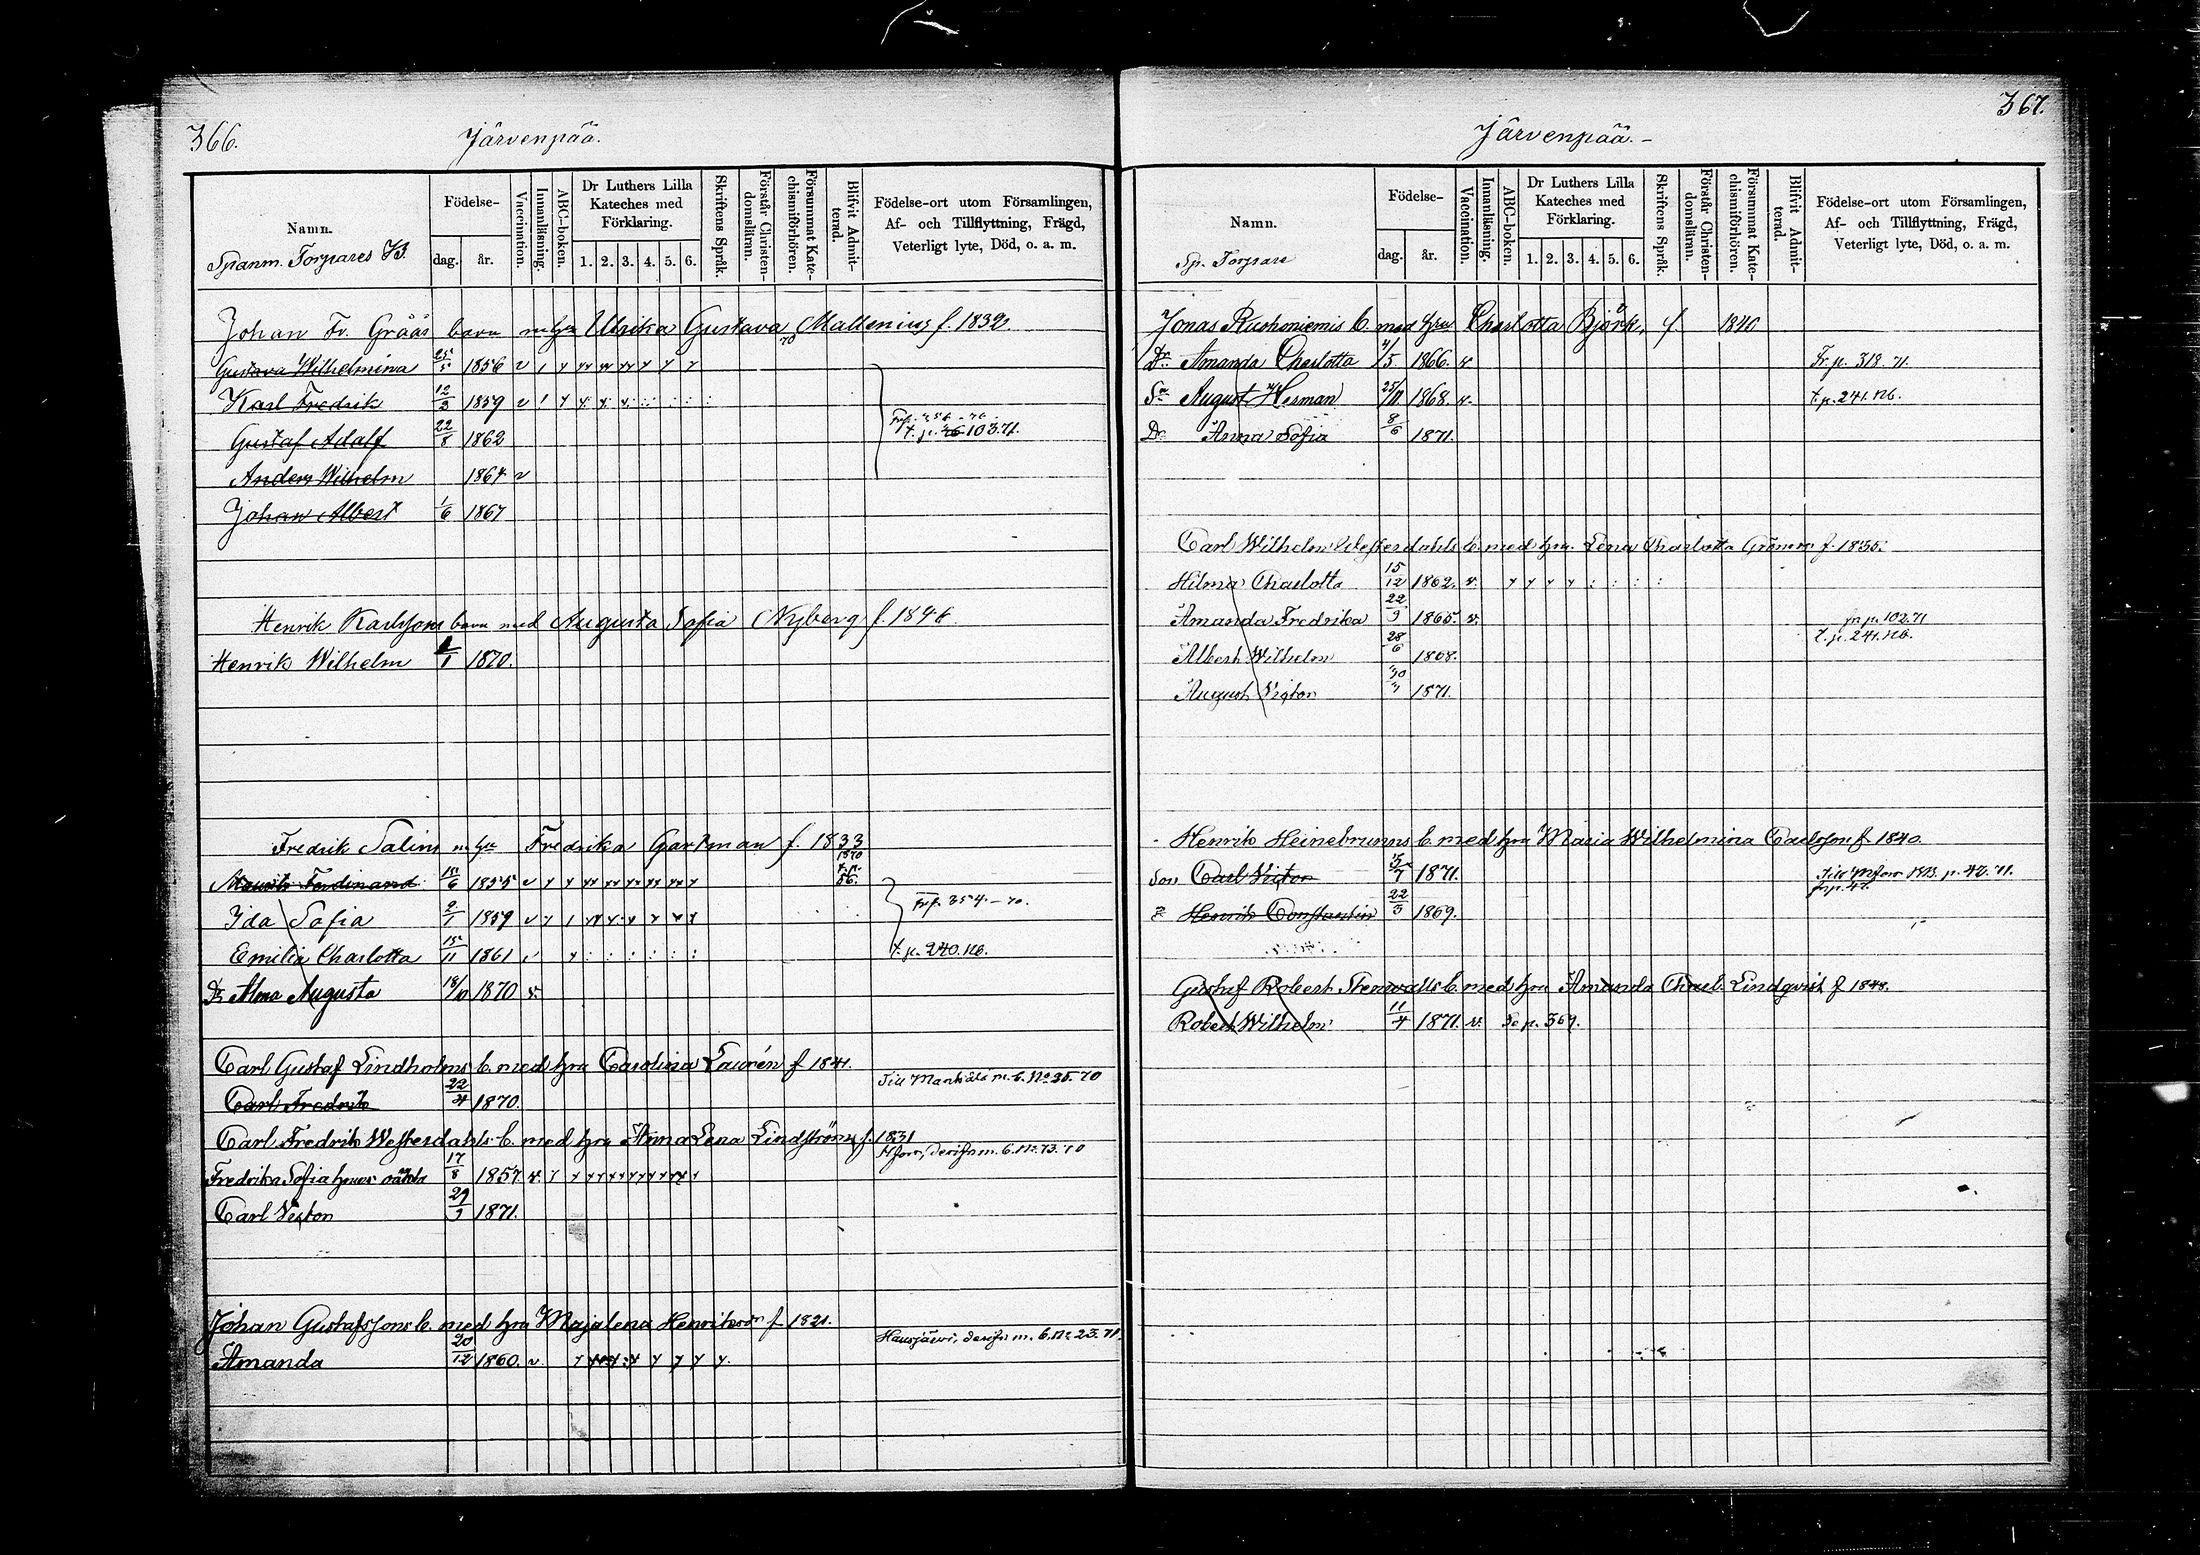 366.
Järvenpää.
Namn.
Spanm. Torpares
Födelse-
dag.
år.
Vaccination.
Innanläsning.
ABC-boken.
Dr Luthers Lilla
Kateches med
Förklaring.
1. 2. 3. 4. 5. 6.
Skriftens Språk.
Förstår Christen-
domsläran.
Försummat Kate-
chismiförhören.
Blifvit Admit-
terad.
Födelse-ort utom Församlingen,
Af- och Tillflyttning, Frägd,
Veterligt lyte, Död, o. a. m.
Johan Fr. Grââs barn m hu Ulrika Gustava Mallenius f. 1832
Gustava Wilhelmina 25/5 1856 v
Karl Fredrik 12/3 1859 v
Gustaf Adolf 22/8 1862 t. p. 103.71.
Anders Wilhelm 1864 v
Johan Albert 1/6 1867
Henrik Karlssons barn med Augusta Sofia Nyberg f. 1846
Henrik Wilhelm 1/1 1870.
Fredrik Salins m hu Fredrika Gartman f. 1833
Maurits Ferdinand 15/6 1855 v 1870 t. p. 56.
Ida Sofia 2/1 1859 v Frp. 354.-70.
Emilia Charlotta 15/11 1861 v t. p. 240. nb.
Dr Alma Augusta 18/10 1870 v.
Carl Gustaf Lindholms b. med hru Carolina Laurén f 1841.
Carl Fredrik 22/4 1870. Till Mantsälä m. b. No 35. 70
Carl Fredrik Westerdahls b. med hru Anna Lena Lindström f. 1831
Fredrika Sofia 17/8 1857. v. H:fors, derifr m. b. No 73. 70
Carl Victor 29/3 1871.
Johan Gustafssons b. med hru Majalena Henriksdr f 1821.
Amanda 20/12 1860. v. Hausjärvi, derifr m. b. No 23. 71.
367.
Järvenpää.-
Namn.
Sp. Torpare
Födelse-
dag.
år.
Vaccination.
Innanläsning.
ABC-boken.
Dr Luthers Lilla
Kateches med
Förklaring.
1. 2. 3. 4. 5. 6.
Skriftens Språk.
Förstår Christen-
domsläran.
Försummat Kate-
chismiförhören.
Blifvit Admit-
terad.
Födelse-ort utom Församlingen,
Af- och Tillflyttning, Frägd,
Veterligt lyte, Död, o. a. m.
Jonas Ruohoniemis b. med hru Charlotta Björk, f 1840
Dr. Amanda Charlotta 1866. v. Fr. p. 318. 71.
Sn August Herman 1868. v. t. p. 241. nb.
Dr Anna Sofia 8/6 1871.
Carl Wilhelm Westerdahls b. med hru. Lena Charlotta Grönroos f. 1835.
Hilma Charlotta 15/12 1862. v.
Amanda Fredrika 22/3 1865. v. fr p. 102. 71
t. p. 241. nb.
Albert Wilhelm 28/6 1868.
August Victor 1871.
Henrik Heinebruuns b. med hru Maria Wilhelmina Carlsson f. 1840.
Son Carl Victor 1871.
Henrik Constantin 22/3 1869.
Gustaf Robert b. med hru Amanda Charl. Lindqvist f 1848.
Robert Wilhelm 11/4 1871. v. Se p. 369.